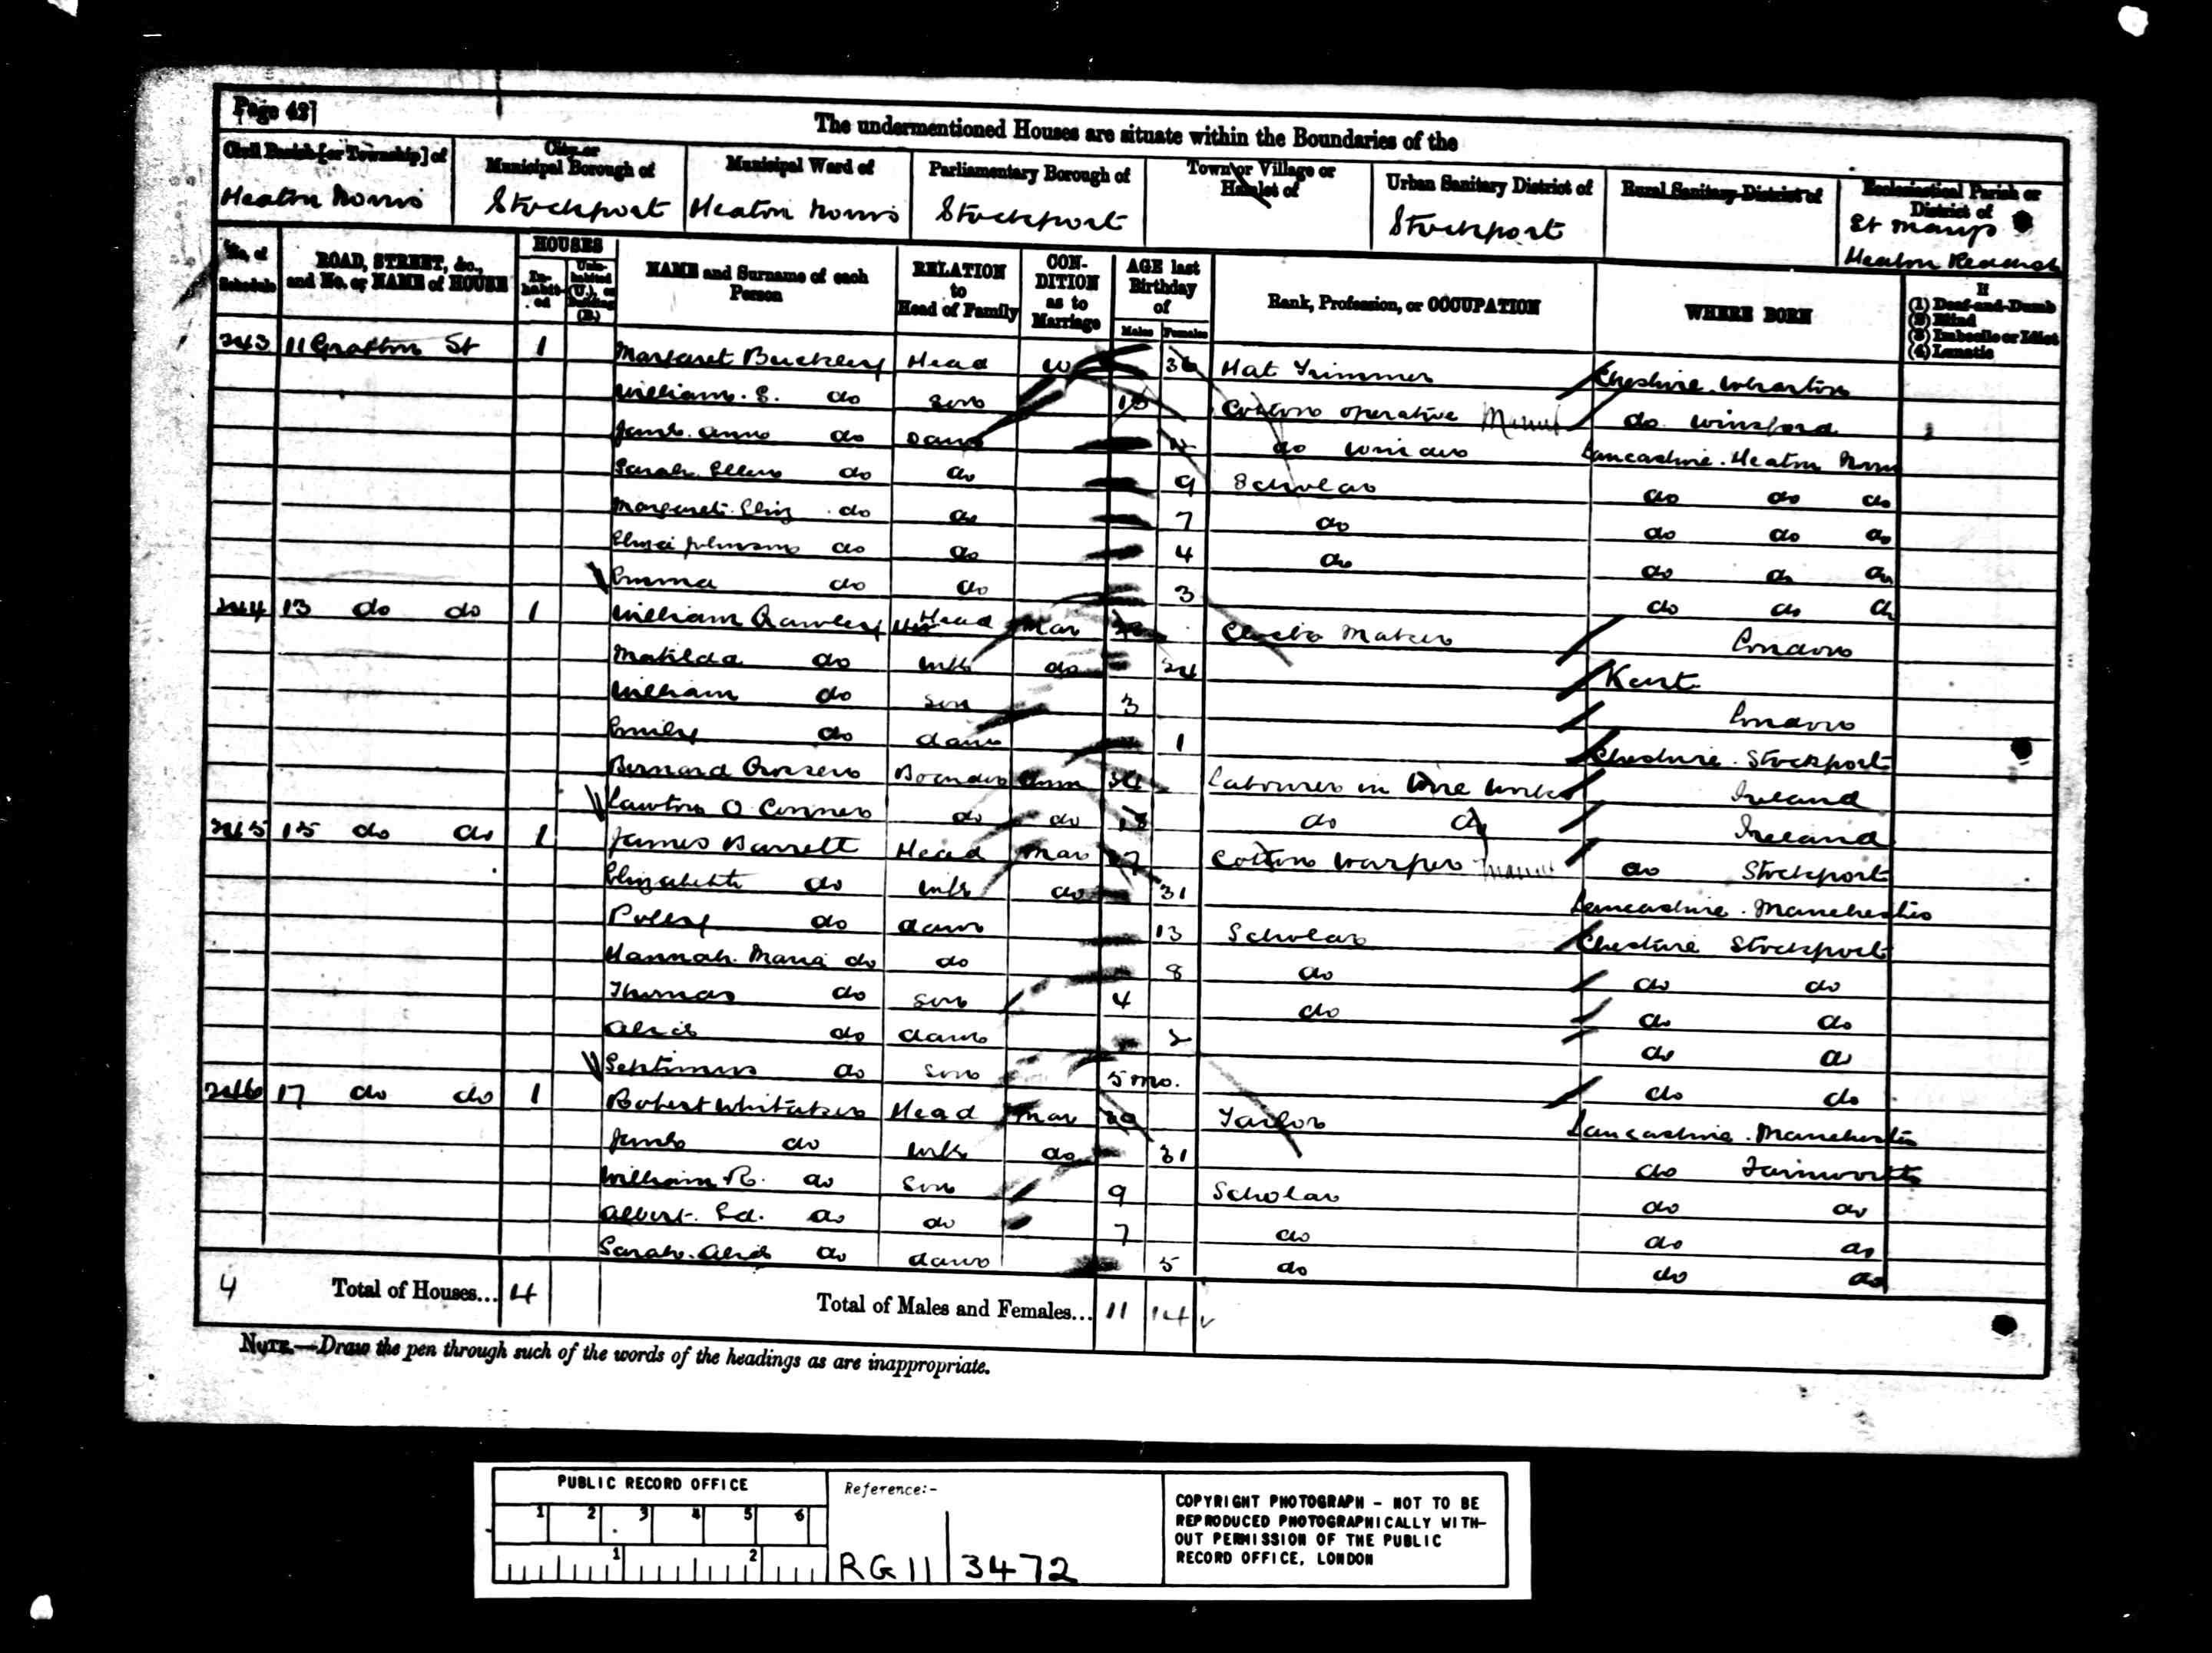 Page 42]
The undermentioned Houses are situate within the Boundaries of the
Civil Parish [or Township] of
City or Municipal Borough of
Municipal Ward of
Parliamentary Borough of
Town or Village or Hamlet of
Urban Sanitary District of
Rural Sanitary District of
Ecclesiastical Parish or District of
Heaton Norris Stockport Heaton Norris Stockport Stockport St Marys Heaton Reddish
No. of Schedule
ROAD, STREET, &c., and No. or NAME of HOUSE
HOUSES
In-habit-ed
Unin-habited (U.), or Building (B.)
NAME and Surname of each Person
RELATION to Head of Family
CON-DITION as to Marriage
AGE last Birthday of
Males Females
Rank, Profession, or OCCUPATION
WHERE BORN
If
(1) Deaf-and-Dumb
(2) Blind
(3) Imbecile or Idiot
(4) Lunatic
243 11 Grafton St 1 Margaret Buckley Head W 36 Hat Trimmer Cheshire Wharton
William. S. do son Cotton operative do Winsford
Jane. Ann do daur do Lancashire. Heaton Norris
Sarah Ellen do do 9 Scholar do do do
Margaret. Eliz do do 7 do do do do
Eliza Johnson do do 4 do do do do
Emma do do 3 do do do
244 13 do do 1 William Head Mar Maker London
Matilda do wife do 24 Kent
William do son 3 London
Emily do daur 1 Cheshire. Stockport
Bernard Boarder Unm 34 Labourer in Wire Works Ireland
O Conner do do 18 do do Ireland
245 15 do do 1 James Barrett Head Mar Cotton Warper do Stockport
Elizabeth do wife do 31 Lancashire. Manchester
Polly do daur 13 Scholar Cheshire Stockport
Hannah. Maria do do 8 do do do
Thomas do son 4 do do do
Alice do daur 2 do do
Septimus do son 5 mo. do do
246 17 do do 1 Robert Whitaker Head Mar Tailor Lancashire. Manchester
Jane do wife do 31 do Farnworth
William R. do son 9 Scholar do do
Albert. Ed. do do 7 do do do
Sarah. Alice do daur 5 do do do
4 Total of Houses... 4 Total of Males and Females... 11 14
NOTE.—Draw the pen through such of the words of the headings as are inappropriate.
PUBLIC RECORD OFFICE
1 2 3 4 5 6
1 2
Reference:-
RG 11 3472
COPYRIGHT PHOTOGRAPH - NOT TO BE
REPRODUCED PHOTOGRAPHICALLY WITH-
OUT PERMISSION OF THE PUBLIC
RECORD OFFICE, LONDON